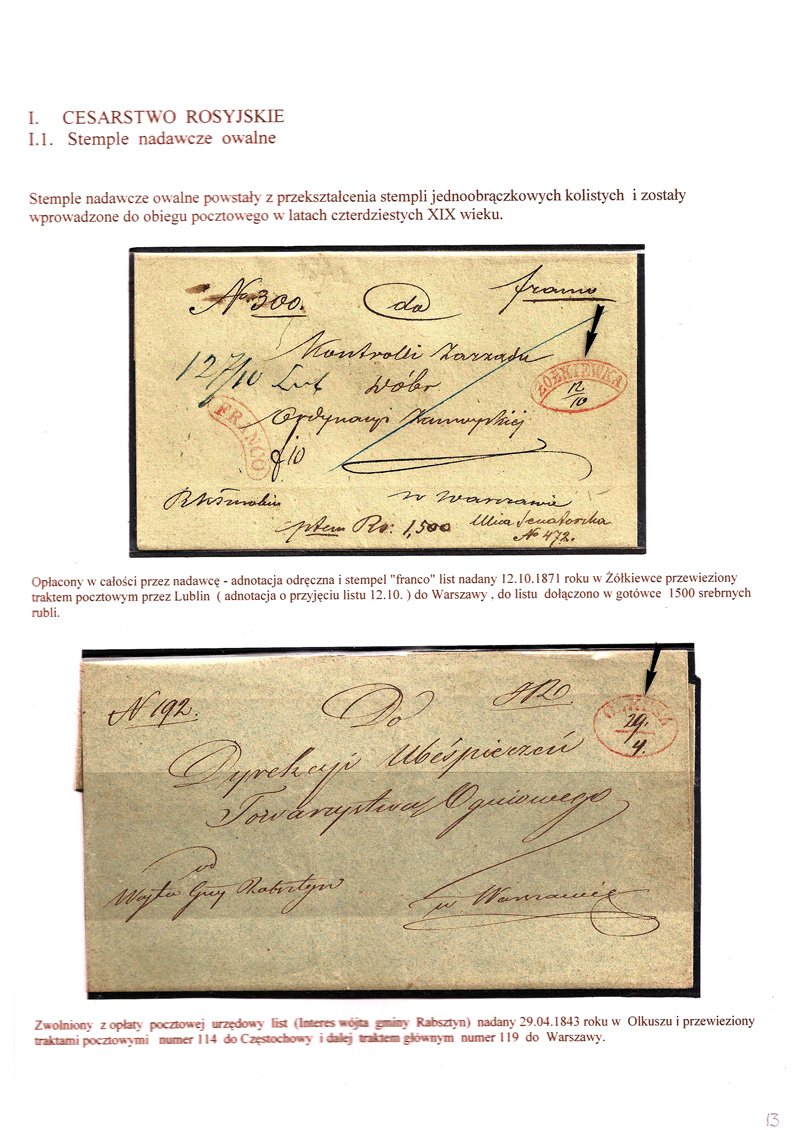 I. CESARSTWO ROSYJSKIE
I.1. Stemple nadawcze owalne
Stemple nadawcze owalne powstały z przekształcenia stempli jednoobrączkowych kolistych i zostały
wprowadzone do obiegu pocztowego w latach czterdziestych XIX wieku.
No 300. do franco
Kontrolli Zarządu
ŻÓŁKIEWKA
12
10
127/10 Lub Dóbr
FRANCO
Ordynacyi Zamoyskiej
w Warszawie
ptem Rs: 1,500 Ulica Senatorska
No 472.
Opłacony w całości przez nadawcę - adnotacja odręczna i stempel "franco" list nadany 12.10.1871 roku w Żółkiewce przewieziony
traktem pocztowym przez Lublin ( adnotacja o przyjęciu listu 12.10. ) do Warszawy , do listu dołączono w gotówce 1500 srebrnych
rubli.
N 192. Do
29.
4.
Dyrekcji Ubéspieczeń
Towarzystwa Ogniowego
od
Wojta Gmy Rabsztyn
w Warszawie
Zwolniony z opłaty pocztowej urzędowy list (Interes wójta gminy Rabsztyn) nadany 29.04.1843 roku w Olkuszu i przewieziony
traktami pocztowymi numer 114 do Częstochowy i dalej traktem głównym numer 119 do Warszawy.
13